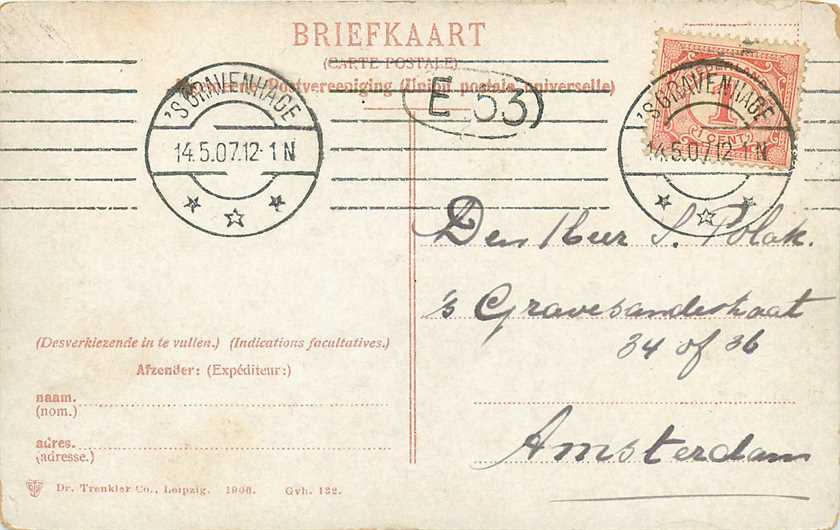 BRIEFKAART
(CARTE POSTALE)
Algemeene Postvereeniging (Union postale universelle)
'S GRAVENHAGE
14.5.07.12-1 N
E 53
'S GRAVENHAGE
14.5.07.12-1 N
1
CENT
Den Heer S. Polak.
's Gravesandestraat
34 of 36
Amsterdam
(Desverkiezende in te vullen.) (Indications facultatives.)
Afzender: (Expéditeur:)
naam.
(nom.)
adres.
(adresse.)
Dr. Trenkler Co., Leipzig. 1906. Gvh. 132.